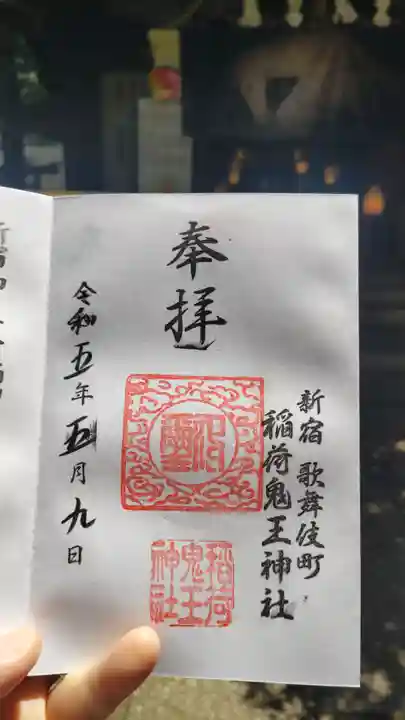 新宿 歌舞伎町
稲荷鬼王神社
奉拝
令和五年五月九日
稲荷
鬼王
神社